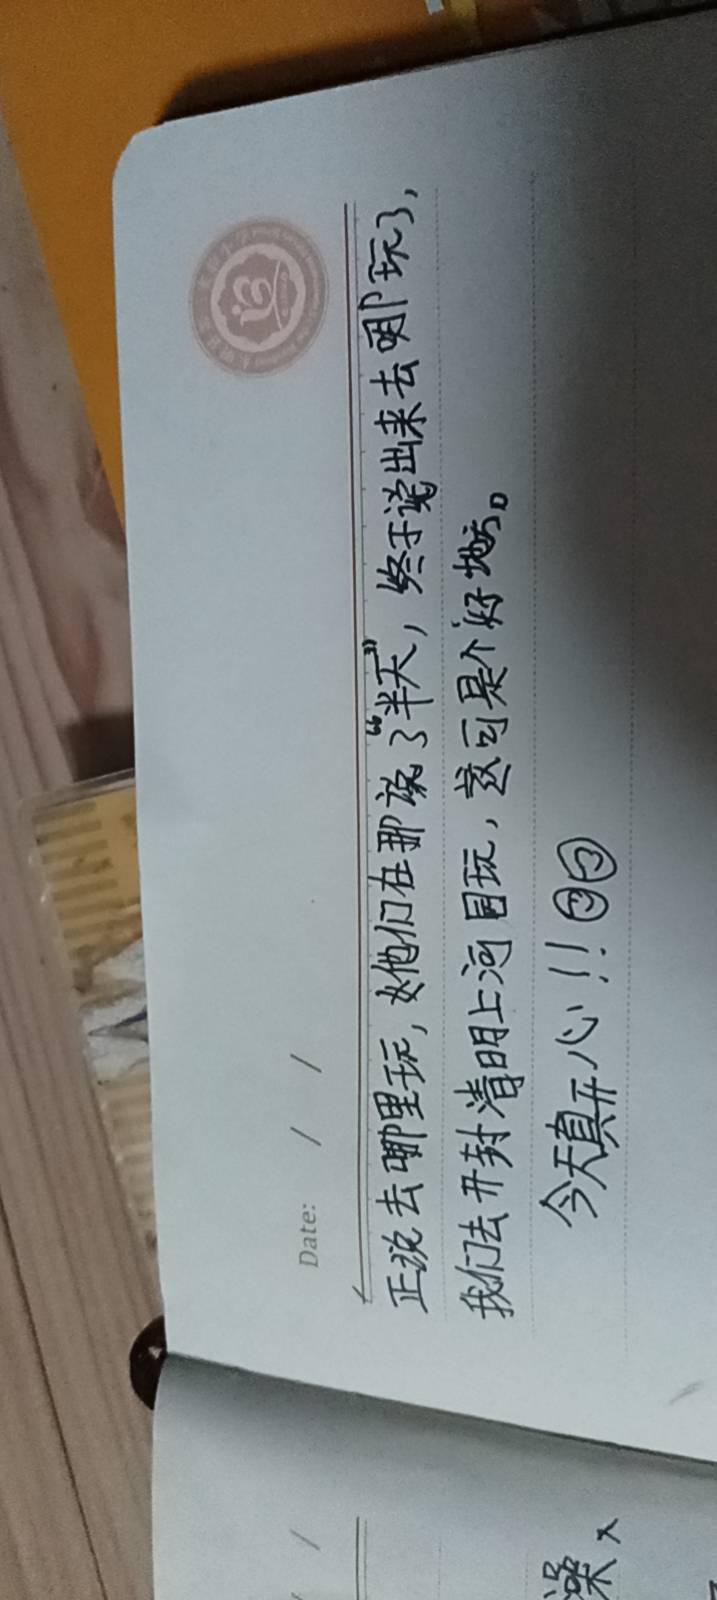 Date: / /
正说去哪里玩，她们在那说了“半天”，终于说出来去哪玩了，
我们去开封清明上河园玩，这可是个好地方。
今天真开心！！
澡、